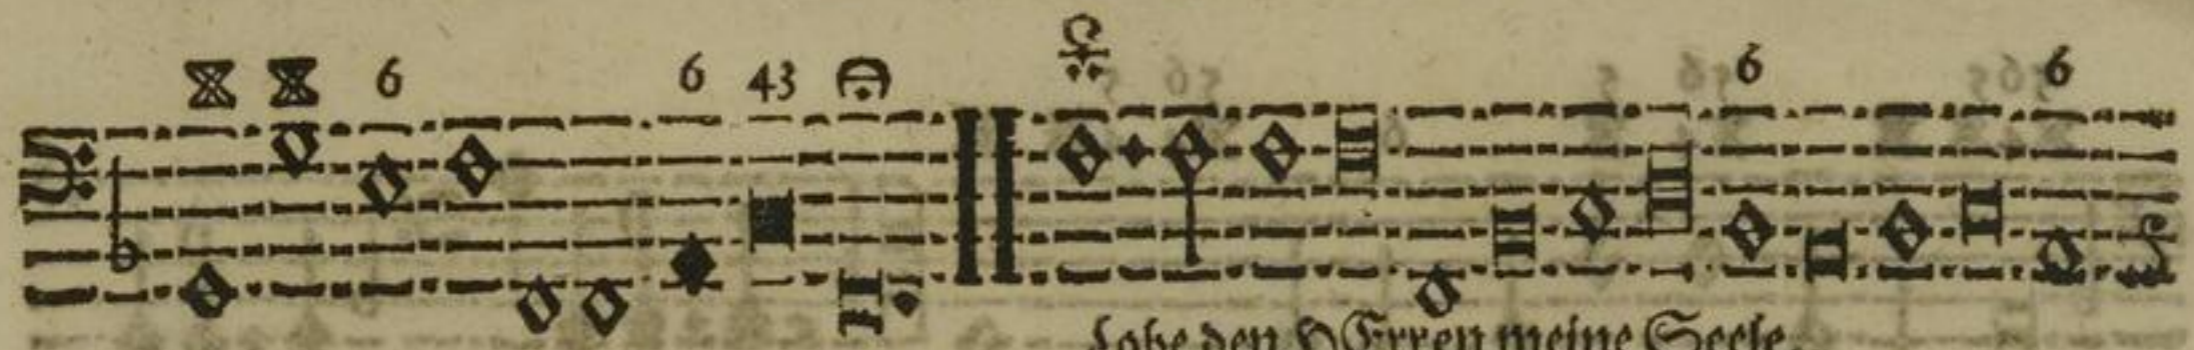 6 6 43 6 6
Lobe den HErren meine Seele.